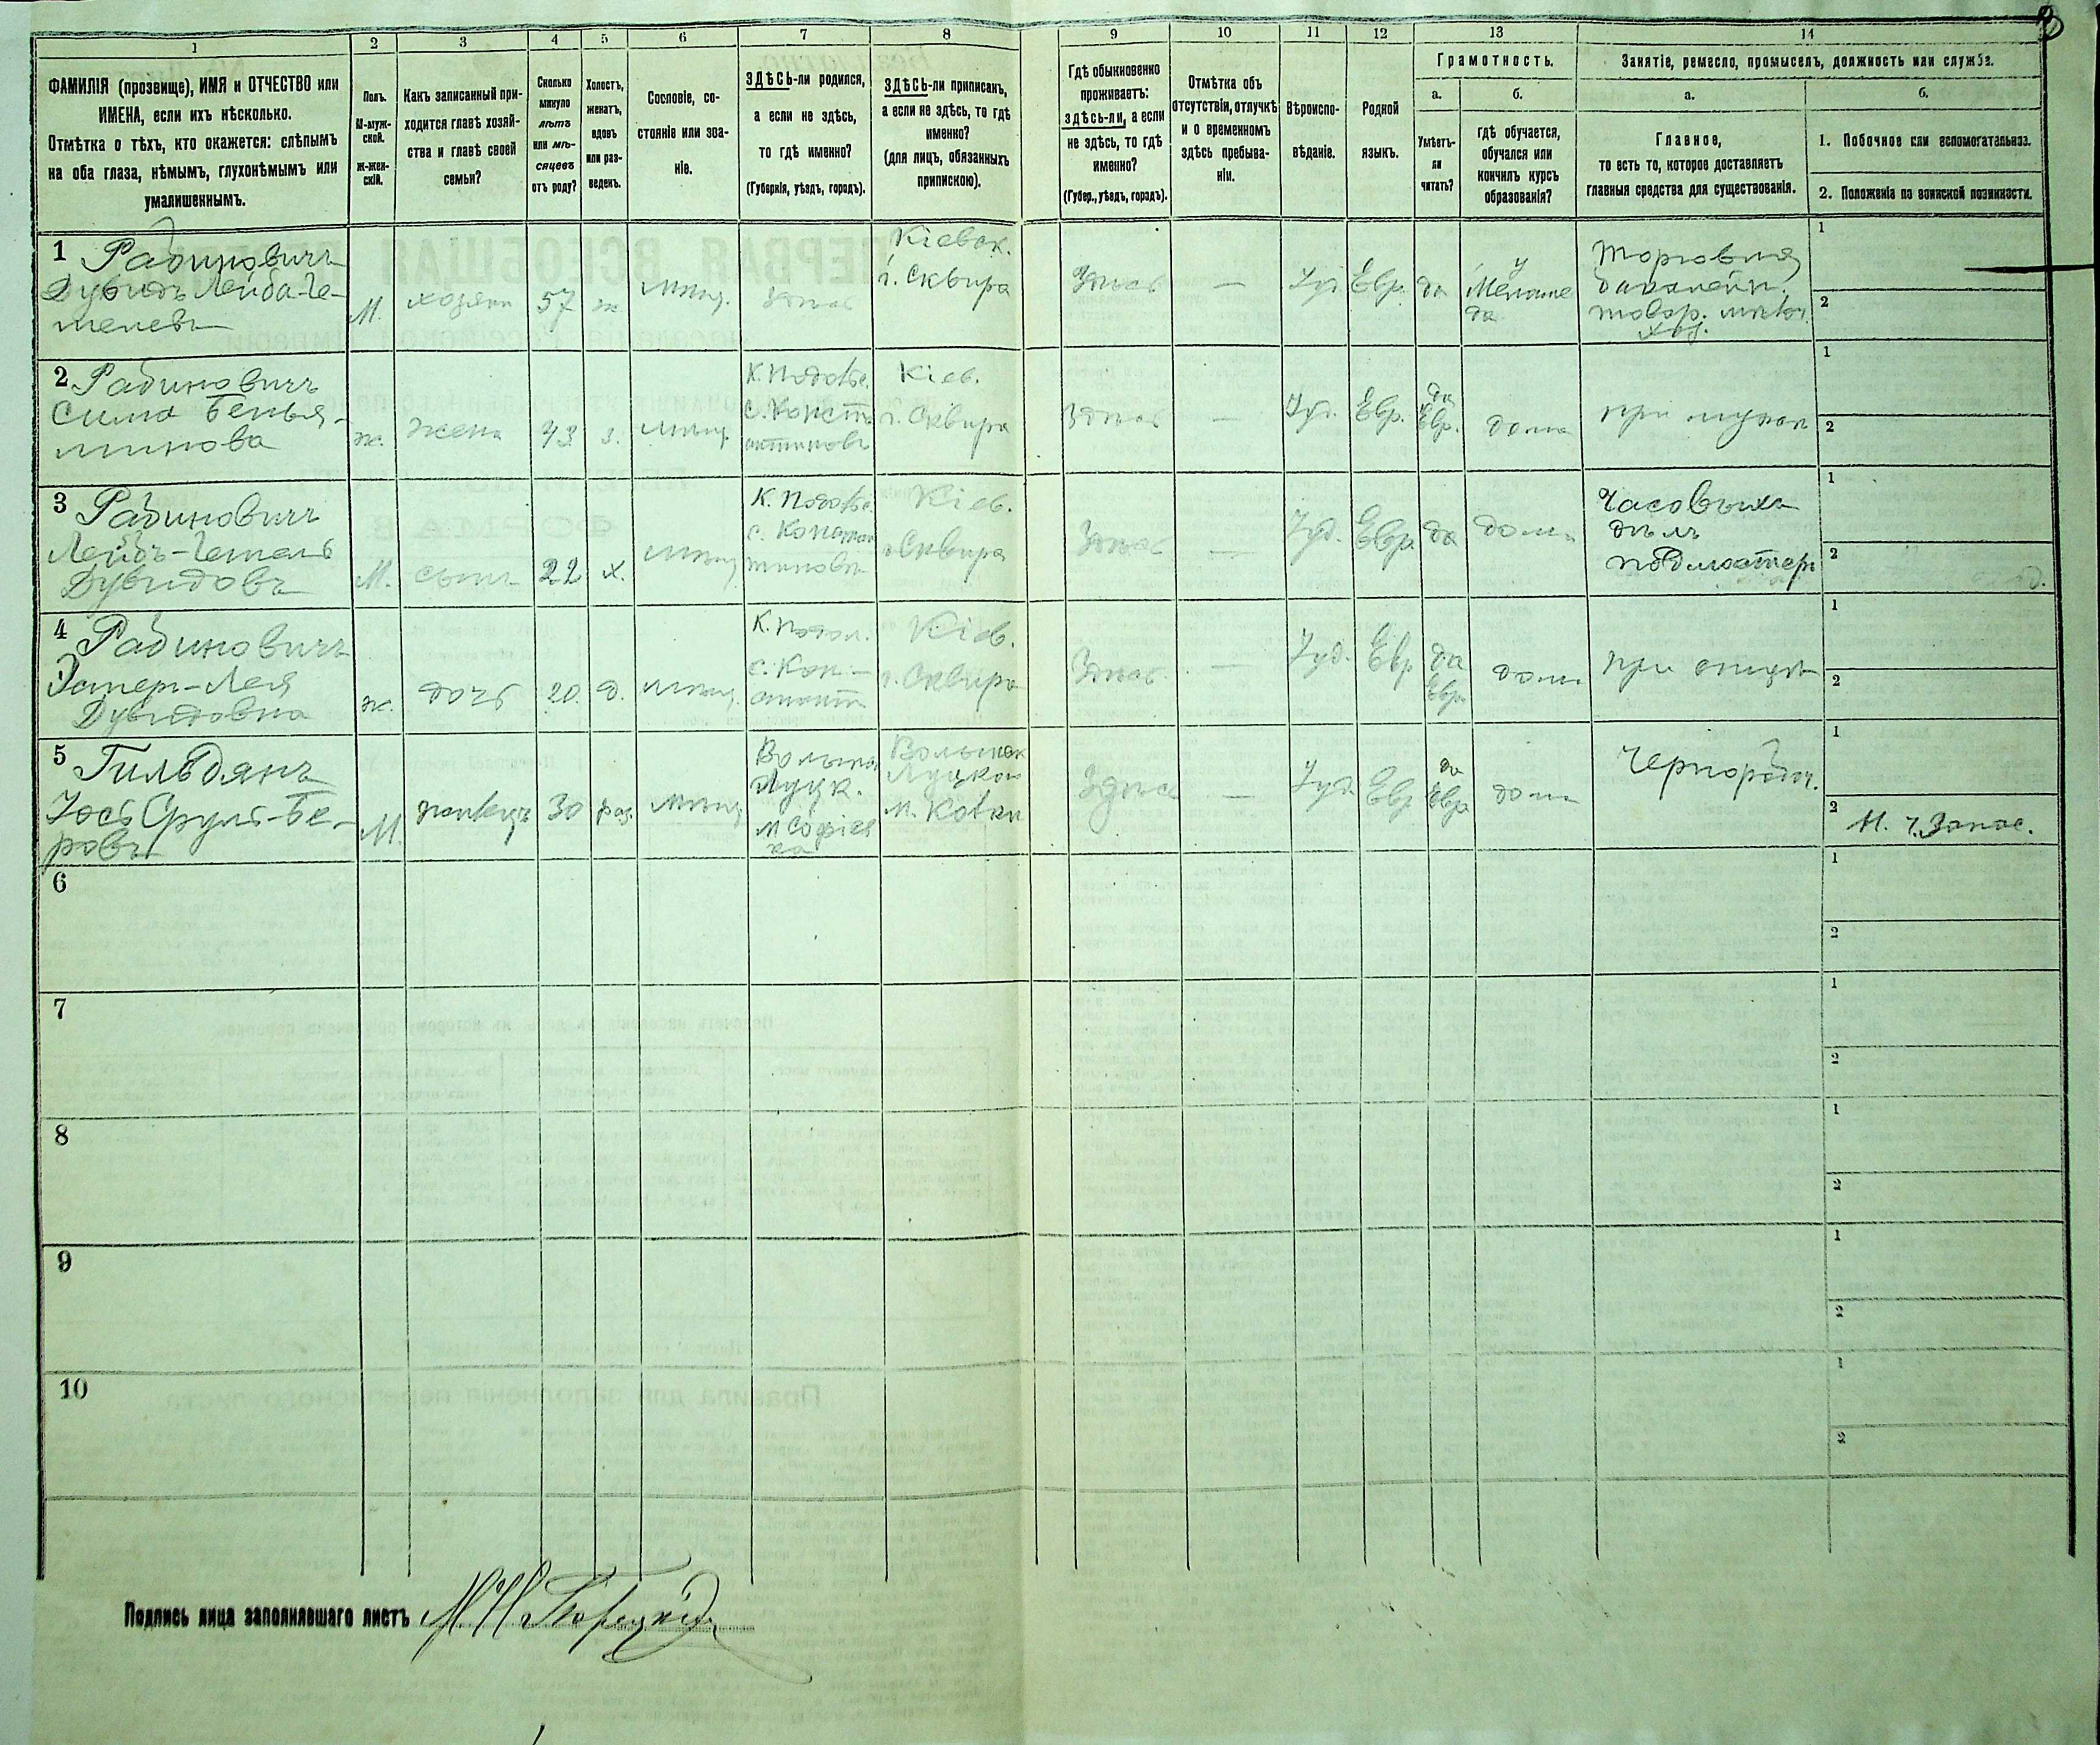 1 2 3 4 5 6 7 8 9 10 11 12 13 14
ФАМИЛІЯ (прозвище), ИМЯ и ОТЧЕСТВО или
ИМЕНА, если ихъ нѣсколько.
Отмѣтка о тѣхъ, кто окажется: слѣпымъ
на оба глаза, нѣмымъ, глухонѣмымъ или
умалишеннымъ.
Полъ.
М-муж-
ской.
Ж-жен-
скій.
Какъ записанный при-
ходится главѣ хозяй-
ства и главѣ своей
семьи?
Сколько
минуло
лѣтъ
или мѣ-
сяцевъ
отъ роду?
Холостъ,
женатъ,
вдовъ
или раз-
веденъ.
Сословіе, со-
стояніе или зва-
ніе.
ЗДѢСЬ-ли родился,
а если не здѣсь,
то гдѣ именно?
(Губернія, уѣздъ, городъ).
ЗДѢСЬ-ли приписанъ,
а если не здѣсь, то гдѣ
именно?
(для лицъ, обязанныхъ
припискою).
Гдѣ обыкновенно
проживаетъ:
здѣсь-ли, а если
не здѣсь, то гдѣ
именно?
(Губер., уѣздъ, городъ).
Отмѣтка объ
отсутствіи, отлучкѣ
и о временномъ
здѣсь пребыва-
ніи.
Вѣроиспо-
вѣданіе.
Родной
языкъ.
Грамотность.
а.
Умѣетъ-
ли
читать?
б.
гдѣ обучается,
обучался или
кончилъ курсъ
образованія?
Занятіе, ремесло, промыселъ, должность или служба.
а.
Главное,
то есть то, которое доставляетъ
главныя средства для существованія.
б.
1. Побочное или вспомогательное.
2. Положеніе по воинской повинности.
1 Рабиновичъ
Дувидъ Лейба-Ге-
шелевъ
М.
хозяин
57
ж.
мѣщ.
здѣсь
Кіевск.
г. Сквира
Здѣсь
—
Іуд.
Евр.
да
у
Меламе
да
Торговля
бакалейн.
товар.
1
2
2 Рабиновичъ
Сима Бенья-
минова
ж.
жена
43
з.
мѣщ.
К. Подольс.
с. Конст
антиновъ
Кіев.
г. Сквира
Здѣсь
—
Іуд.
Евр.
да
Евр.
дома
при мужѣ
1
2
3 Рабиновичъ
Лейбъ-Гешель
Дувидовъ
М.
сынъ
22
х.
мѣщ.
К. Подольс.
с. Констан
тиновъ
Кіев.
г. Сквира
Здѣсь
—
Іуд.
Евр.
да
дома
Часовыхъ
дѣлъ
подмастер
1
2
4 Рабиновичъ
Эстер-Лея
Дувидовна
ж.
дочь
20.
д.
мѣщ.
К. Подол.
с. Кон-
стант
Кіев.
г. Сквира
Здѣсь
—
Іуд.
Евр
да
Евр.
дома
при отцѣ
1
2
5 Гильдянъ
Іось Сруль-Бе-
ровъ
М.
30
раз.
мѣщ.
Волынс
Луцк.
м Софіев
ка
Волынск
Луцкій
м. Колки
Здѣсь
—
Іуд.
Евр
да
Евр
дома
Чернорабоч.
1
2
Н. ч. Запас.
6
1
2
7
1
2
8
1
2
9
1
2
10
1
2
Подпись лица заполнявшаго листъ